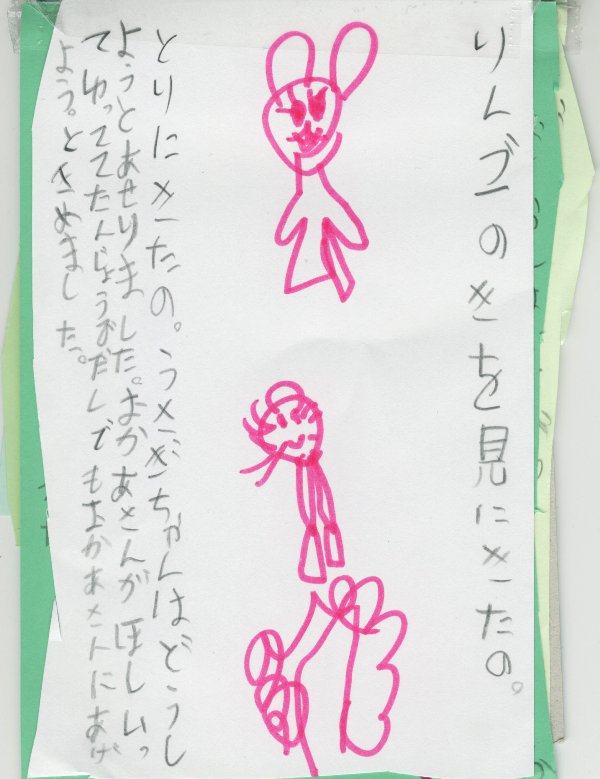 りんゴのきを見にきたの。
とりにきたの。うさぎちゃんはどうし
ようとあせりました。おかあさんがほしいっ
てゆっててたんじょうおだしでもおかあさんにあげ
よう。ときめました。